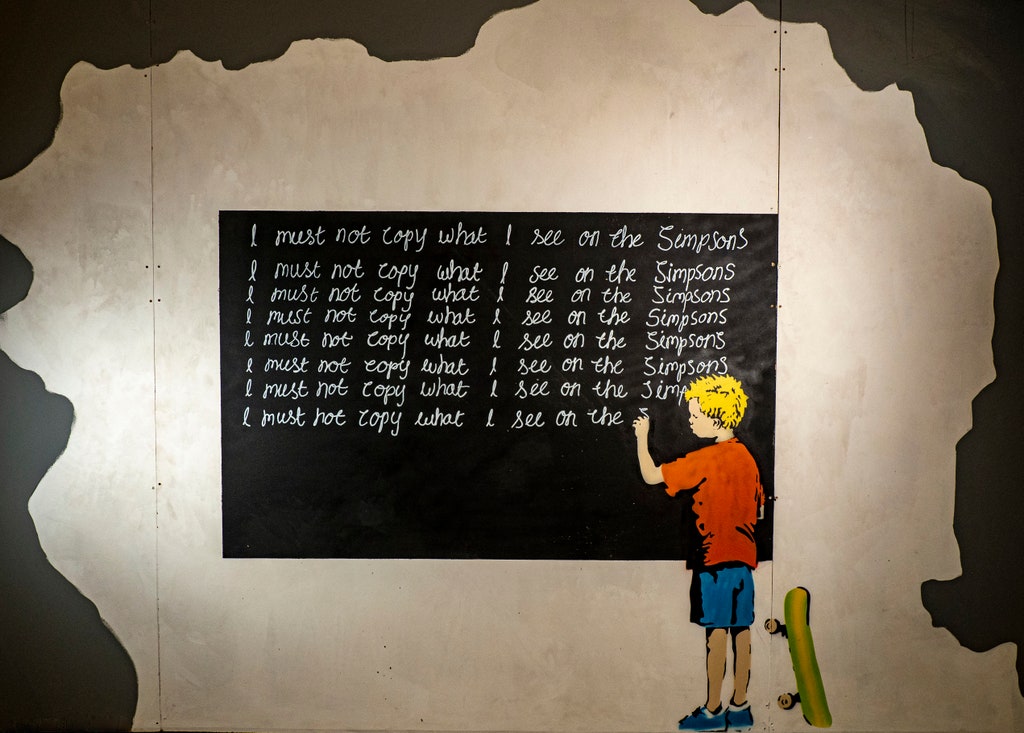 I must not copy what I see on the Simpsons
I must not copy what I see on the Simpsons
I must not copy what I see on the Simpsons
I must not copy what I see on the Simpsons
I must not copy what I see on the Simpsons
I must not copy what I see on the Simpsons
I must not copy what I see on the Simp
I must not copy what I see on the S